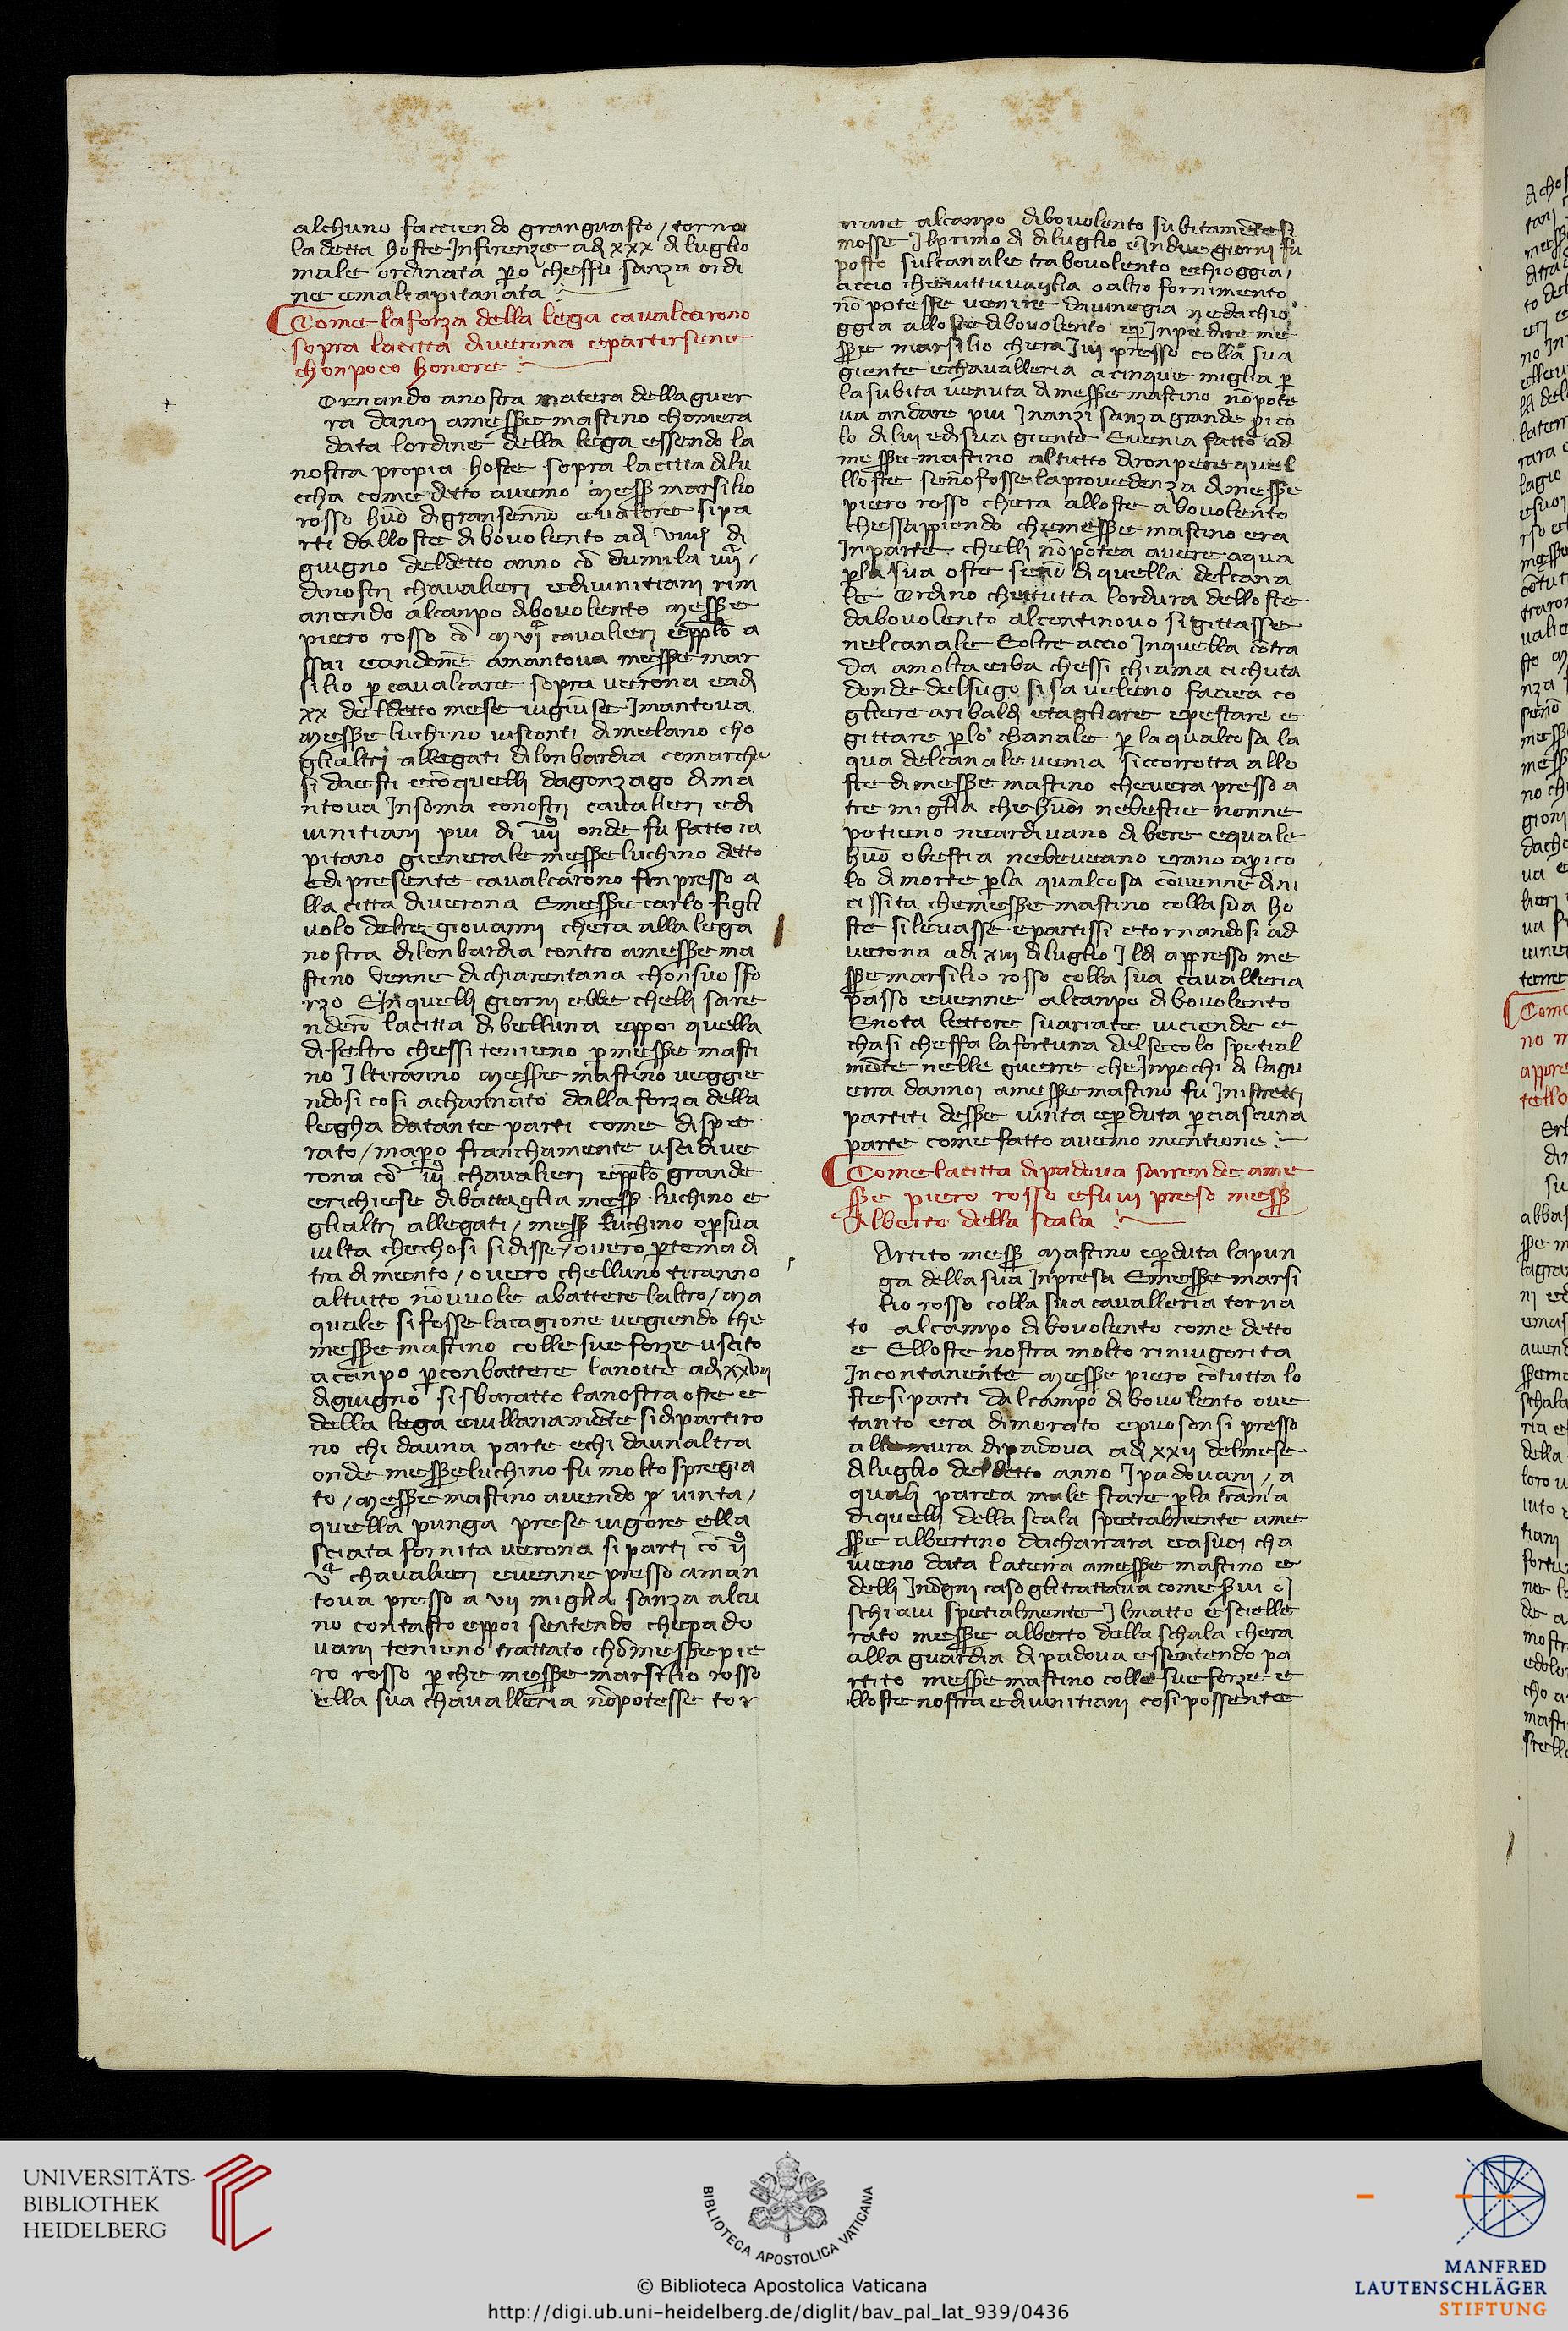 alchuno facciendo granguasto / torno
la detta hoste Jnfirenze adj xxx di luglio
male ordinata pero cheffu sanza ordi
ne emalcapitanata :~
Come laforza della lega cavalcarono
sopra lacitta diverona epartirsene
chonpoco honore :~
Ornando anostra matera dellaguer
ra danoj amesser mastino chomera
data lordine della lega essendo la
nostra propia hoste sopra lacitta dilu
ccha come detto avemo messer marsilio
rosso huo digransenno evalore sipa
rti dalloste dibovolento adj di
giugno deldetto anno co dumila
dinostrj chavalierj edivinitianj rim
anendo alcanpo dibovolento messer
piero rosso co cavalierj epplo a
ssai eandone amantova messer mar
silio p cavalcare sopra verona eadj
xx deldetto mese vigiunse Jmantova
messer luchino visconti dimelano cho
glialtrj allegati dilonbardia comarche
si daesti ecoquellj dagonzago dima
ntova Jnsoma conostrj cavalierj edi
vinitianj piu di iiij onde fu fatto ca
pitano gienerale messer luchino detto
edi presente cavalcarono fin presso a
lla citta diverona Emesser carlo figli
uolo delre giovannj chera alla lega
nostra dilonbardia contro amesser ma
stino venne dichiarentana chonsuo sfo
rzo EJn quellj giornj ebbe chellj sare
ndero lacitta dibelluna eppoi quella
difeltro chessi tenieno p messer masti
no Jltiranno messer mastino veggie
ndosi cosi achanato dalla forza della
legha datante parti come dispe
rato / mapero franchamente uscidive
rona co iij chavalierj epplo grande
erichiese dibattaglia messer luchino e
glialtrj allegati / messer luchino opsua
vilta chechosi sidisse / overo ptema di
tradimento / overo chelluno tiranno
altutto nouvole abattere laltro / ma
quale sifosse lacagione vegiendo che
messer mastino colle sue forze uscito
acanpo pconbattere lanotte adj xxvij
digiugno sisbaratto lanostra oste e
della lega evillanamete sidipartiro
no chi dauna parte echi daunaltra
onde messer luchino fu molto spregia
to / messer mastino avendo p vinta /
quella punga prese vigore ella
sciata fornita verona si partj co ij
chavalierj evenne presso aman
tova presso a vij miglia sanza alcu
no contasto eppoi sentendo chepado
vanj tenieno trattato chomesser pie
ro rosso pche messer marsilio rosso
ella sua chavalleria nopotesse tor
nare alcanpo dibovolento subitamete si
mosse Jlprimo di diluglio eJndue giornj fu
posto sulcanale trabovolento echioggia /
accio chevittuvaglia oaltro fornimento
no potesse venire davinegia nedachio
ggia alloste dibovolento epJnpedire me
sser marsilio chera Jvi presso colla sua
giente echavalleria acinque miglia p
lasubita venuta dimesser mastino nopote
va andare piu Jnanzi sanza grande pico
lo dilui edisua giente Evenia fatto ad
messer mastino altutto dironpere quel
lloste seno fosse laprovedenza dimesser
piero rosso chera alloste abovolento
chessappiendo chemesser mastino era
Jnparte chellj nopotea avere aqua
pla sua oste seno di quella delcana
le Ordino chettutta lordura delloste
dabovolento alcontinovo sigittasse
nelcanale Eoltre accio Jnquella cotra
da amolta erba chessi chiama cichuta
donde delsugo sifa veleno faciea co
gliere aribaldj etagliare epestare e
gittare plo chanale p laqualcosa la
qua delcanale venia siccorrotta allo
ste dimesser mastino chevera presso a
tre miglia chehuoi nebestie nonne
potieno neardivano dibere equale
huo obestia nebeveano erano apico
lo dimorte pla qualcosa covenne dini
cissita chemesser mastino collasua ho
ste silevasse epartissi etornandosi ad
verona adj xiij diluglio Jldi appresso me
sser marsilio rosso colla sua cavalleria
passo evenne alcanpo dibovolento
Enota lettore svariate viciende e
chasi cheffa lafortuna delsecolo spetial
mete nelle guerre cheJnpochi di lagu
erra dannoj amesser mastino fu Jnistrettj
partiti desser vinta eperduta pciascuna
parte come fatto avemo mentione :~
Come lacitta dipadova sarrende ame
sser piero rosso efuvi preso messer
Alberto della scala :~
Artito messer Mastino eperduta lapun
ga della sua Jnpresa Emesser marsi
lio rosso colla suacavalleria torna
to alcampo dibovolento come detto
e Elloste nostra molto rinvigorita
Jncontanente messer piero cotutta lo
ste siparti dalcampo dibovolento ove
tanto era dimorato epuosonsi presso
alle mura dipadova adj xxij delmese
diluglio deldetto anno J padovanj / a
qualj parea male stare pla tramia
diquellj della scala spetialmente ame
sser albertino dacharrara easuoi cha
vieno data laterra amesser mastino e
dellj Jndegnj caso glitrattava come servi oJ
schiavi spetialmente Jlmatto escielle
rato messer alberto della schala chera
alla guardia dipadova essentendo pa
rtito messer mastino colle sue forze e
lloste nostra edivinitianj cosipossente
UNIVERSITÄTS-
BIBLIOTHEK
HEIDELBERG
BIBLIOTECA APOSTOLICA VATICANA
© Biblioteca Apostolica Vaticana
http://digi.ub.uni-heidelberg.de/diglit/bav_pal_lat_939/0436
MANFRED
LAUTENSCHLÄGER
STIFTUNG